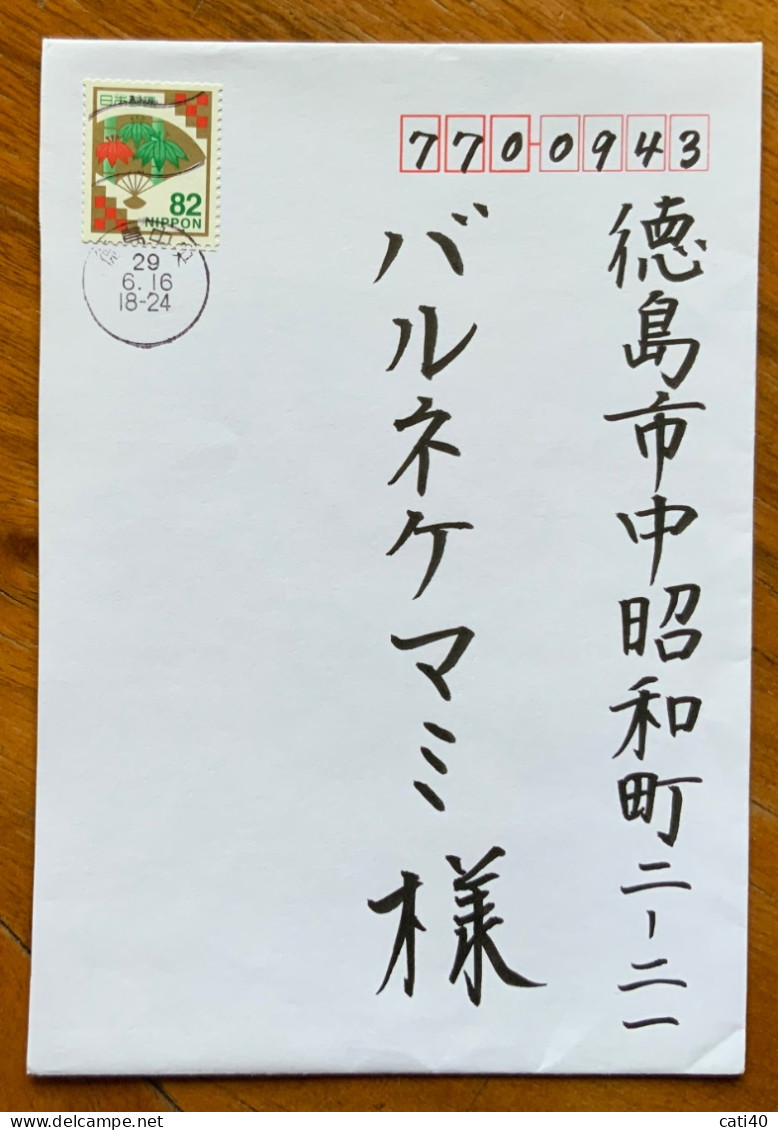 日本郵便
82
NIPPON
徳島中央
29
6.16
18-24
770-0943
徳島市中昭和町二-二一
バルネケマミ様
cati40